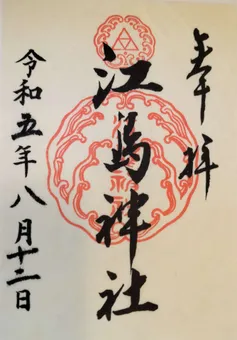 奉拝
江島神社
令和五年八月十二日